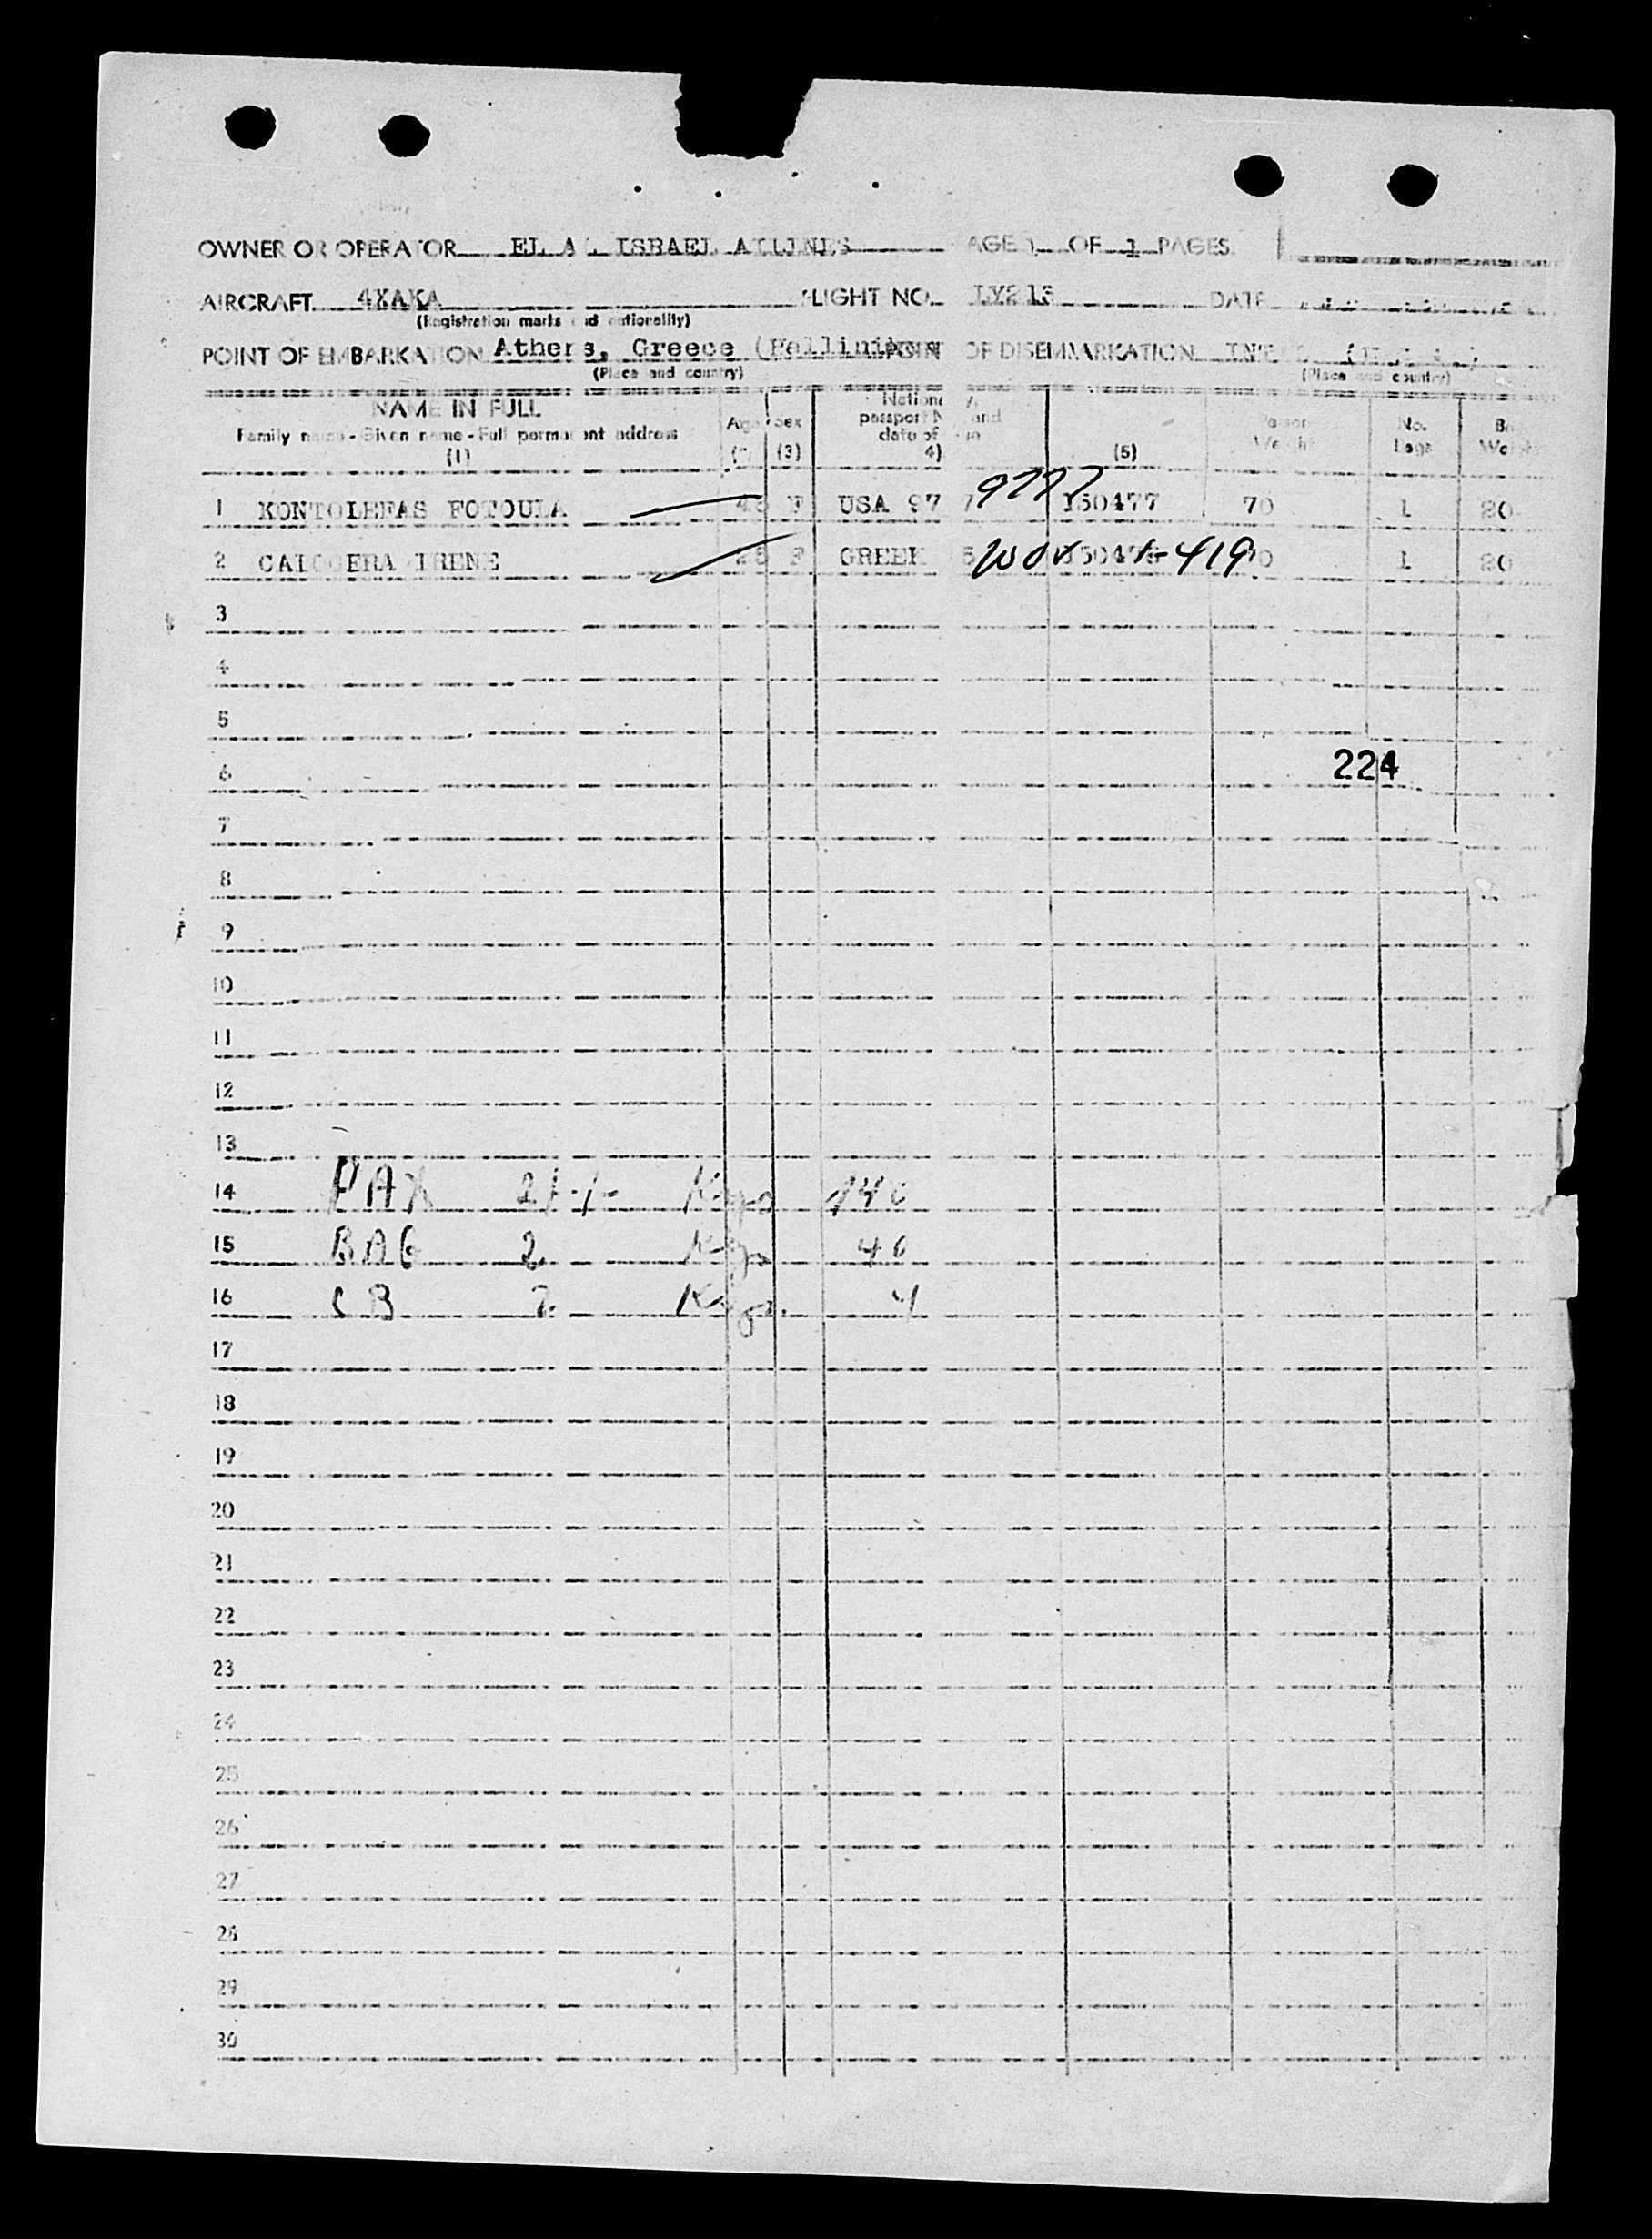 OWNER OR OPERATOR EL AL ISRAEL AILINES PAGE 1 OF 1 PAGES
AIRCRAFT 4XAKA FLIGHT NO. LY215 DATE
(Registration marks and nationality)
POINT OF EMBARKATION Athens, Greece (Hellinikon POINT OF DISEMBARKATION
(Place and country) (Place and country)
NAME IN FULL
Family name - Given name - Full permanent address
(1)
Age
Sex
(3)
passport No. and
date of
4)
(5)
Weight
No.
bags
1 KONTOLEFAS FOTOULA F USA 97 9777 150477 70 1 20
2 CALOGERA IRENE F GREEK 419 1 20
3
4
5
224
6
7
8
9
10
11
12
13
14 PAX 2/-/- Kgs 140
15 BAG 2 Kgs 40
16 CB 2 Kgs 4
17
18
19
20
21
22
23
24
25
26
27
28
29
30